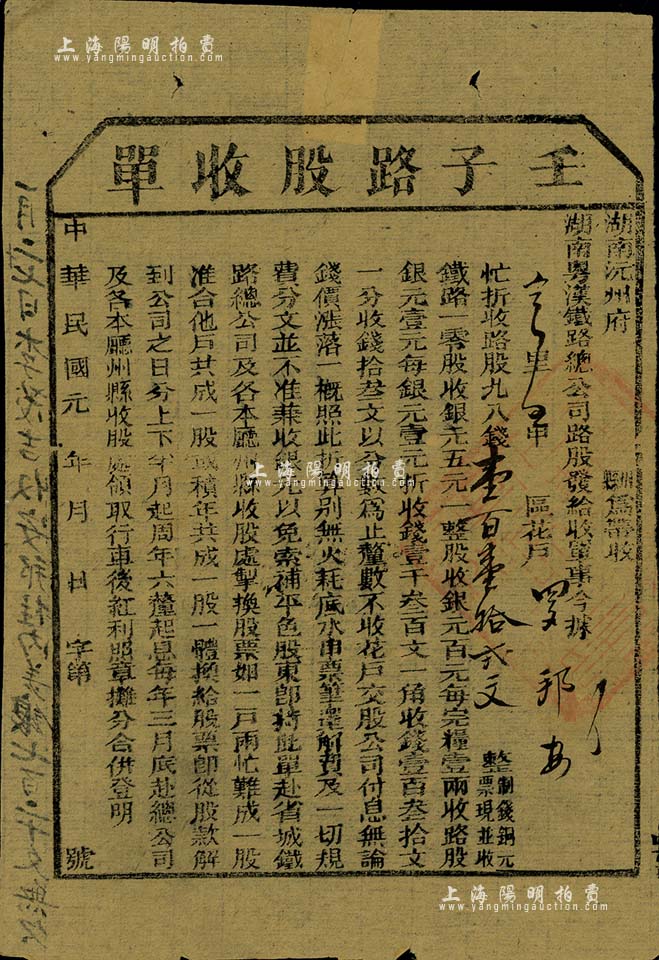 上海陽明拍賣
www.yangmingauction.com
壬子路股收單
湖南沅州府
州縣爲籌收
湖南粵漢鐵路總公司路股發給收單事今據
里 甲 區花戶 羅邦安
忙折收路股九八錢壹百壹拾弍文 制錢銅元整票現並收
鐵路一零股收銀元五元一整股收銀元百元每完糧壹兩收路股
銀元壹元每銀元壹元折收錢壹千叁百文一角收錢壹百叁拾文
一分收錢拾叁文以分數爲止釐數不收花戶交股公司付息無論
錢價漲落一概照此折算別無火耗底水串票筆墨解費及一切規
費分文並不准兼收銀元以免索補平色股東卽持此單赴省城鐵
路總公司及各本廳州縣收股處掣換股票如一戶兩忙難成一股
准合他戶共成一股或積年共成一股一體換給股票卽從股款解
到公司之日分上下半月起周年六釐起息每年三月底赴總公司
及各本廳州縣收股處領取行車後紅利照章攤分合併登明
中華民國元年 月 日 字第 號
上海陽明拍賣
www.yangmingauction.com
上海陽明拍賣
www.yangmingauction.com